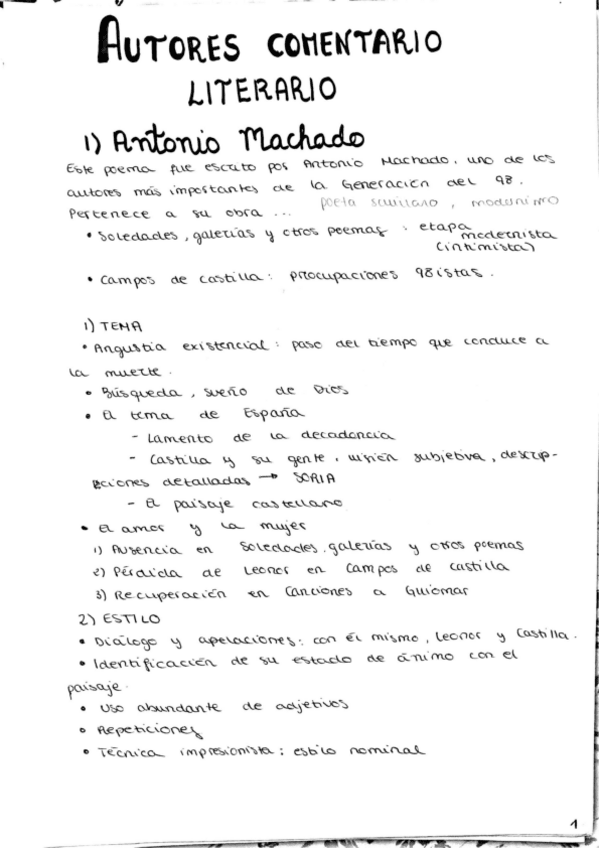 AUTORES COMENTARIO
LITERARIO
1) Antonio Machado
Este poema fue escrito por Antonio Machado, uno de los
autores más importantes de la Generación del 98.
Pertenece a su obra ... poeta sevillano, modernismo
• Soledades, galerías y otros poemas : etapa
modernista
(intimista)
• Campos de Castilla: preocupaciones 98istas.
1) TEMA
• Angustia existencial: paso del tiempo que conduce a
la muerte.
• Búsqueda, sueño de Dios
• El tema de España
- Lamento de la decadencia
- Castilla y su gente, visión subjetiva, descrip-
ciones detalladas → SORIA
- El paisaje castellano
• El amor y la mujer
1) Ausencia en Soledades, galerías y otros poemas
2) Pérdida de Leonor en Campos de Castilla
3) Recuperación en Canciones a Guiomar
2) ESTILO
• Diálogo y apelaciones: con él mismo, Leonor y Castilla.
• Identificación de su estado de ánimo con el
paisaje.
• Uso abundante de adjetivos
• Repeticiones
• Técnica impresionista: estilo nominal
1